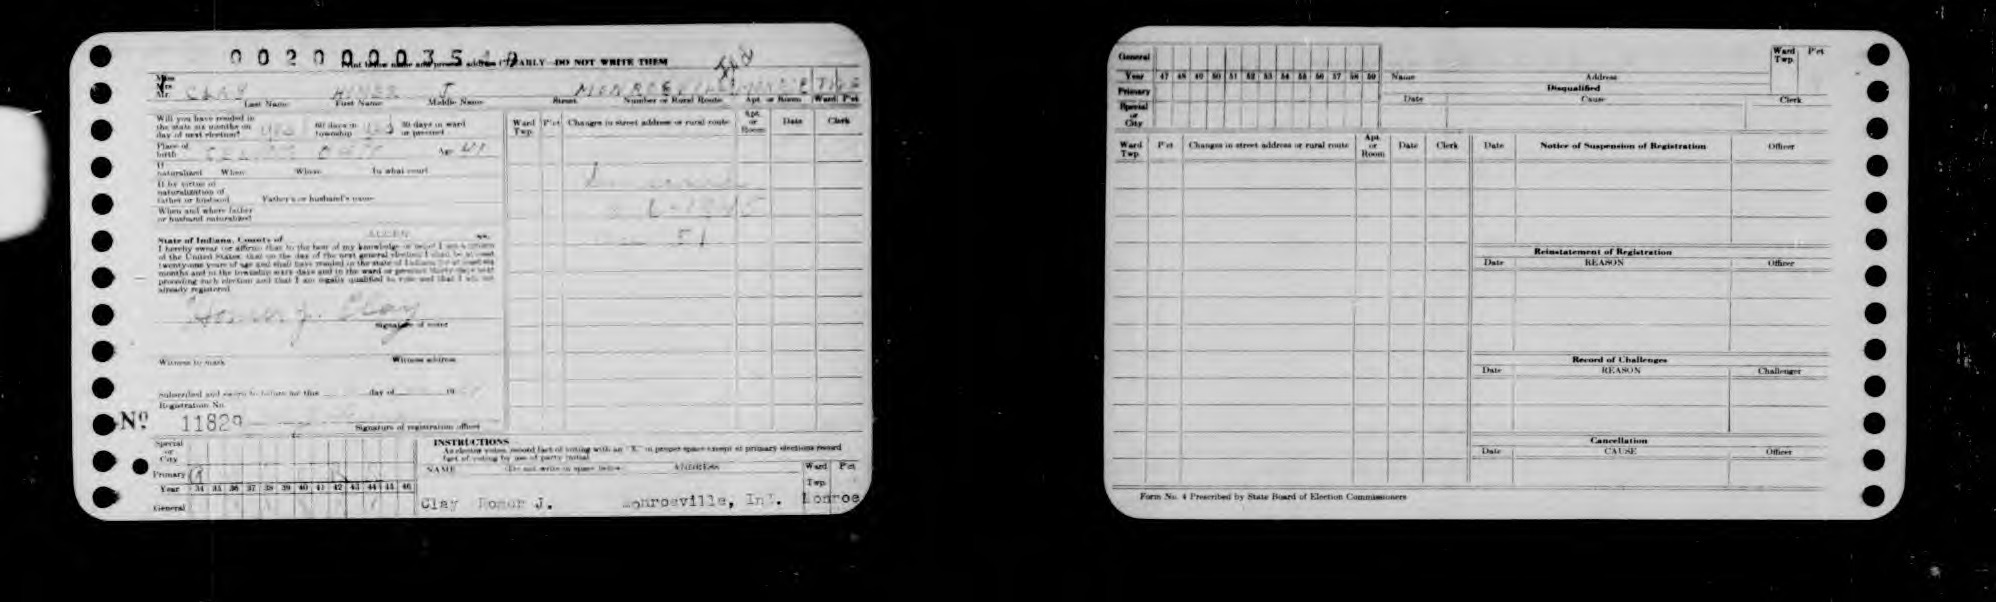 0 0 2 0 0 0 0 3 5
EARLY—DO NOT WRITE THEM
Miss
Mrs.
Mr. CLAY HOMER J. MONROEVILLE MONROE TWP
Last Name First Name Middle Name Street Number or Rural Route Apt. or Room Ward P'ct
Will you have resided in
the state six months on
day of next election? YES 60 days in
township YES 30 days in ward
or precinct
Place of
birth OHIO Age
If
naturalized When Where In what court
If by virtue of
naturalization of
father or husband Father's or husband's name
When and where father
or husband naturalized
State of Indiana, County of ALLEN ss.
I hereby swear (or affirm) that to the best of my knowledge or belief I am a citizen
of the United States; that on the day of the next general election I shall be at least
twenty-one years of age and shall have resided in the state of Indiana for at least six
months and in the township sixty days and in the ward or precinct thirty days next
preceding such election and that I am legally qualified to vote and that I am not
already registered
Homer J. Clay
Signature of voter
Witness to mark Witness address
Subscribed and sworn to before me this day of 19
Registration No.
No. 11829
Signature of registration officer
Ward
Twp. P'ct Changes in street address or rural route Apt.
or
Room Date Clerk
51
Special
or
City
Primary R
Year 34 35 36 37 38 39 40 41 42 43 44 45 46
General
INSTRUCTIONS
As elector votes, record fact of voting with an "X" in proper space except at primary elections record
fact of voting by use of party initial
NAME (Do not write in space below) ADDRESS Ward
Twp. P'ct
Clay Homer J. Monroeville, Ind. Monroe
General
Year 47 48 49 50 51 52 53 54 55 56 57 58 59
Primary
Special
or
City
Name Address Ward
Twp. P'ct
Disqualified
Date Cause Clerk
Ward
Twp. P'ct Changes in street address or rural route Apt.
or
Room Date Clerk
Date Notice of Suspension of Registration Officer
Reinstatement of Registration
Date REASON Officer
Record of Challenges
Date REASON Challenger
Cancellation
Date CAUSE Officer
Form No. 4 Prescribed by State Board of Election Commissioners